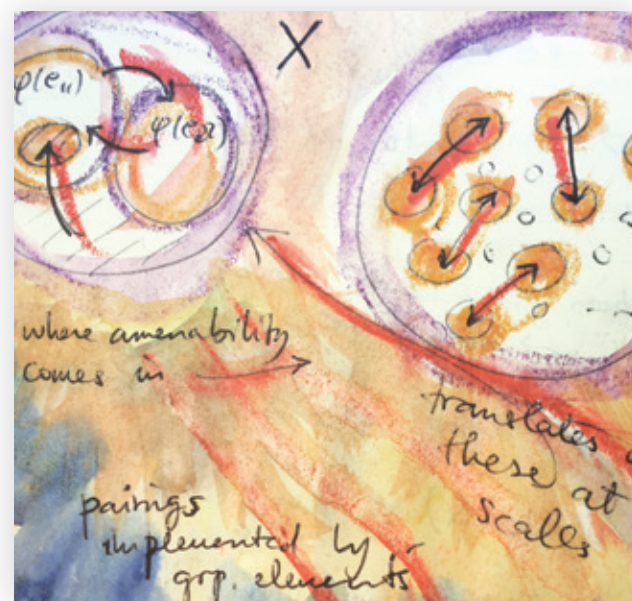 X
φ(e₁₁)
φ(e₂₂)
where amenability
comes in
translates
these at
scales
pairings
implemented by
grp. elements